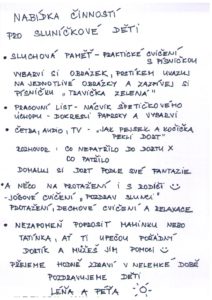 NABÍDKA ČINNOSTÍ
PRO SLUNÍČKOVÉ DĚTI
• SLUCHOVÁ PAMĚŤ - PRAKTICKÉ CVIČENÍ
S PÍSNIČKOU
VYBARVI SI OBRÁZEK, PRSTÍKEM UKAZUJ
NA JEDNOTLIVÉ OBRÁZKY A ZAZPÍVEJ SI
PÍSNIČKU „TRAVIČKA ZELENÁ"
• PRACOVNÍ LIST - NÁCVIK ŠPETIČKOVÉHO
ÚCHOPU - DOKRESLI PAPRSKY A VYBARVI
• ČETBA, AUDIO, TV - „JAK PEJSEK A KOČIČKA
PEKLI DORT"
ROZHOVOR: CO NEPATŘILO DO DORTU X
CO PATŘILO
NAMALUJ SI DORT PODLE SVÉ FANTAZIE
• A NĚCO NA PROTAŽENÍ I S RODIČI
- JÓGOVÉ CVIČENÍ „POZDRAV SLUNCI"
PROTAŽENÍ, DECHOVÉ CVIČENÍ A RELAXACE
• NEZAPOMEŇ POPROSIT MAMINKU NEBO
TATÍNKA, AŤ TI UPEČOU POŘÁDNÝ
DORTÍK A MŮŽEŠ JIM POMOCI
PŘEJEME HODNĚ ZDRAVÍ V NELEHKÉ DOBĚ
POZDRAVUJEME DĚTI
LEŇA A PÉŤA